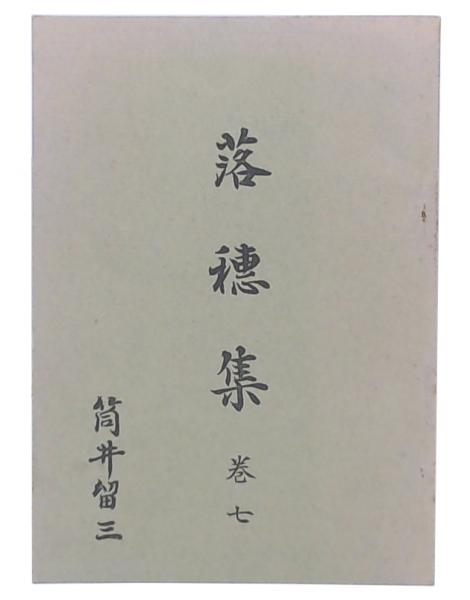 落穂集 巻七
筒井留三